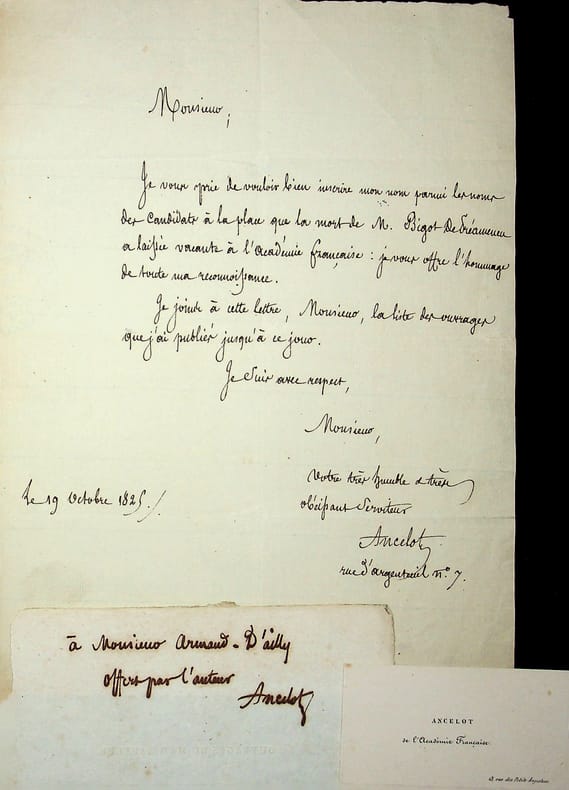 Monsieur,
Je vous prie de vouloir bien inscrire mon nom parmi les noms
des candidats à la place que la mort de M. Bigot de Préameneu
a laissée vacante à l'Académie française : je vous offre l'hommage
de toute ma reconnoissance.
Je joins à cette lettre, Monsieur, la liste des ouvrages
que j'ai publiés jusqu'à ce jour.
Je suis avec respect,
Monsieur,
Votre très humble et très
obéissant Serviteur
Le 19 Octobre 1825.
Ancelot
rue d'argenteuil n.° 7.
à Monsieur Armand-D'ailly
offert par l'auteur
Ancelot
ANCELOT
de l'Académie Française
rue des Petits Augustins